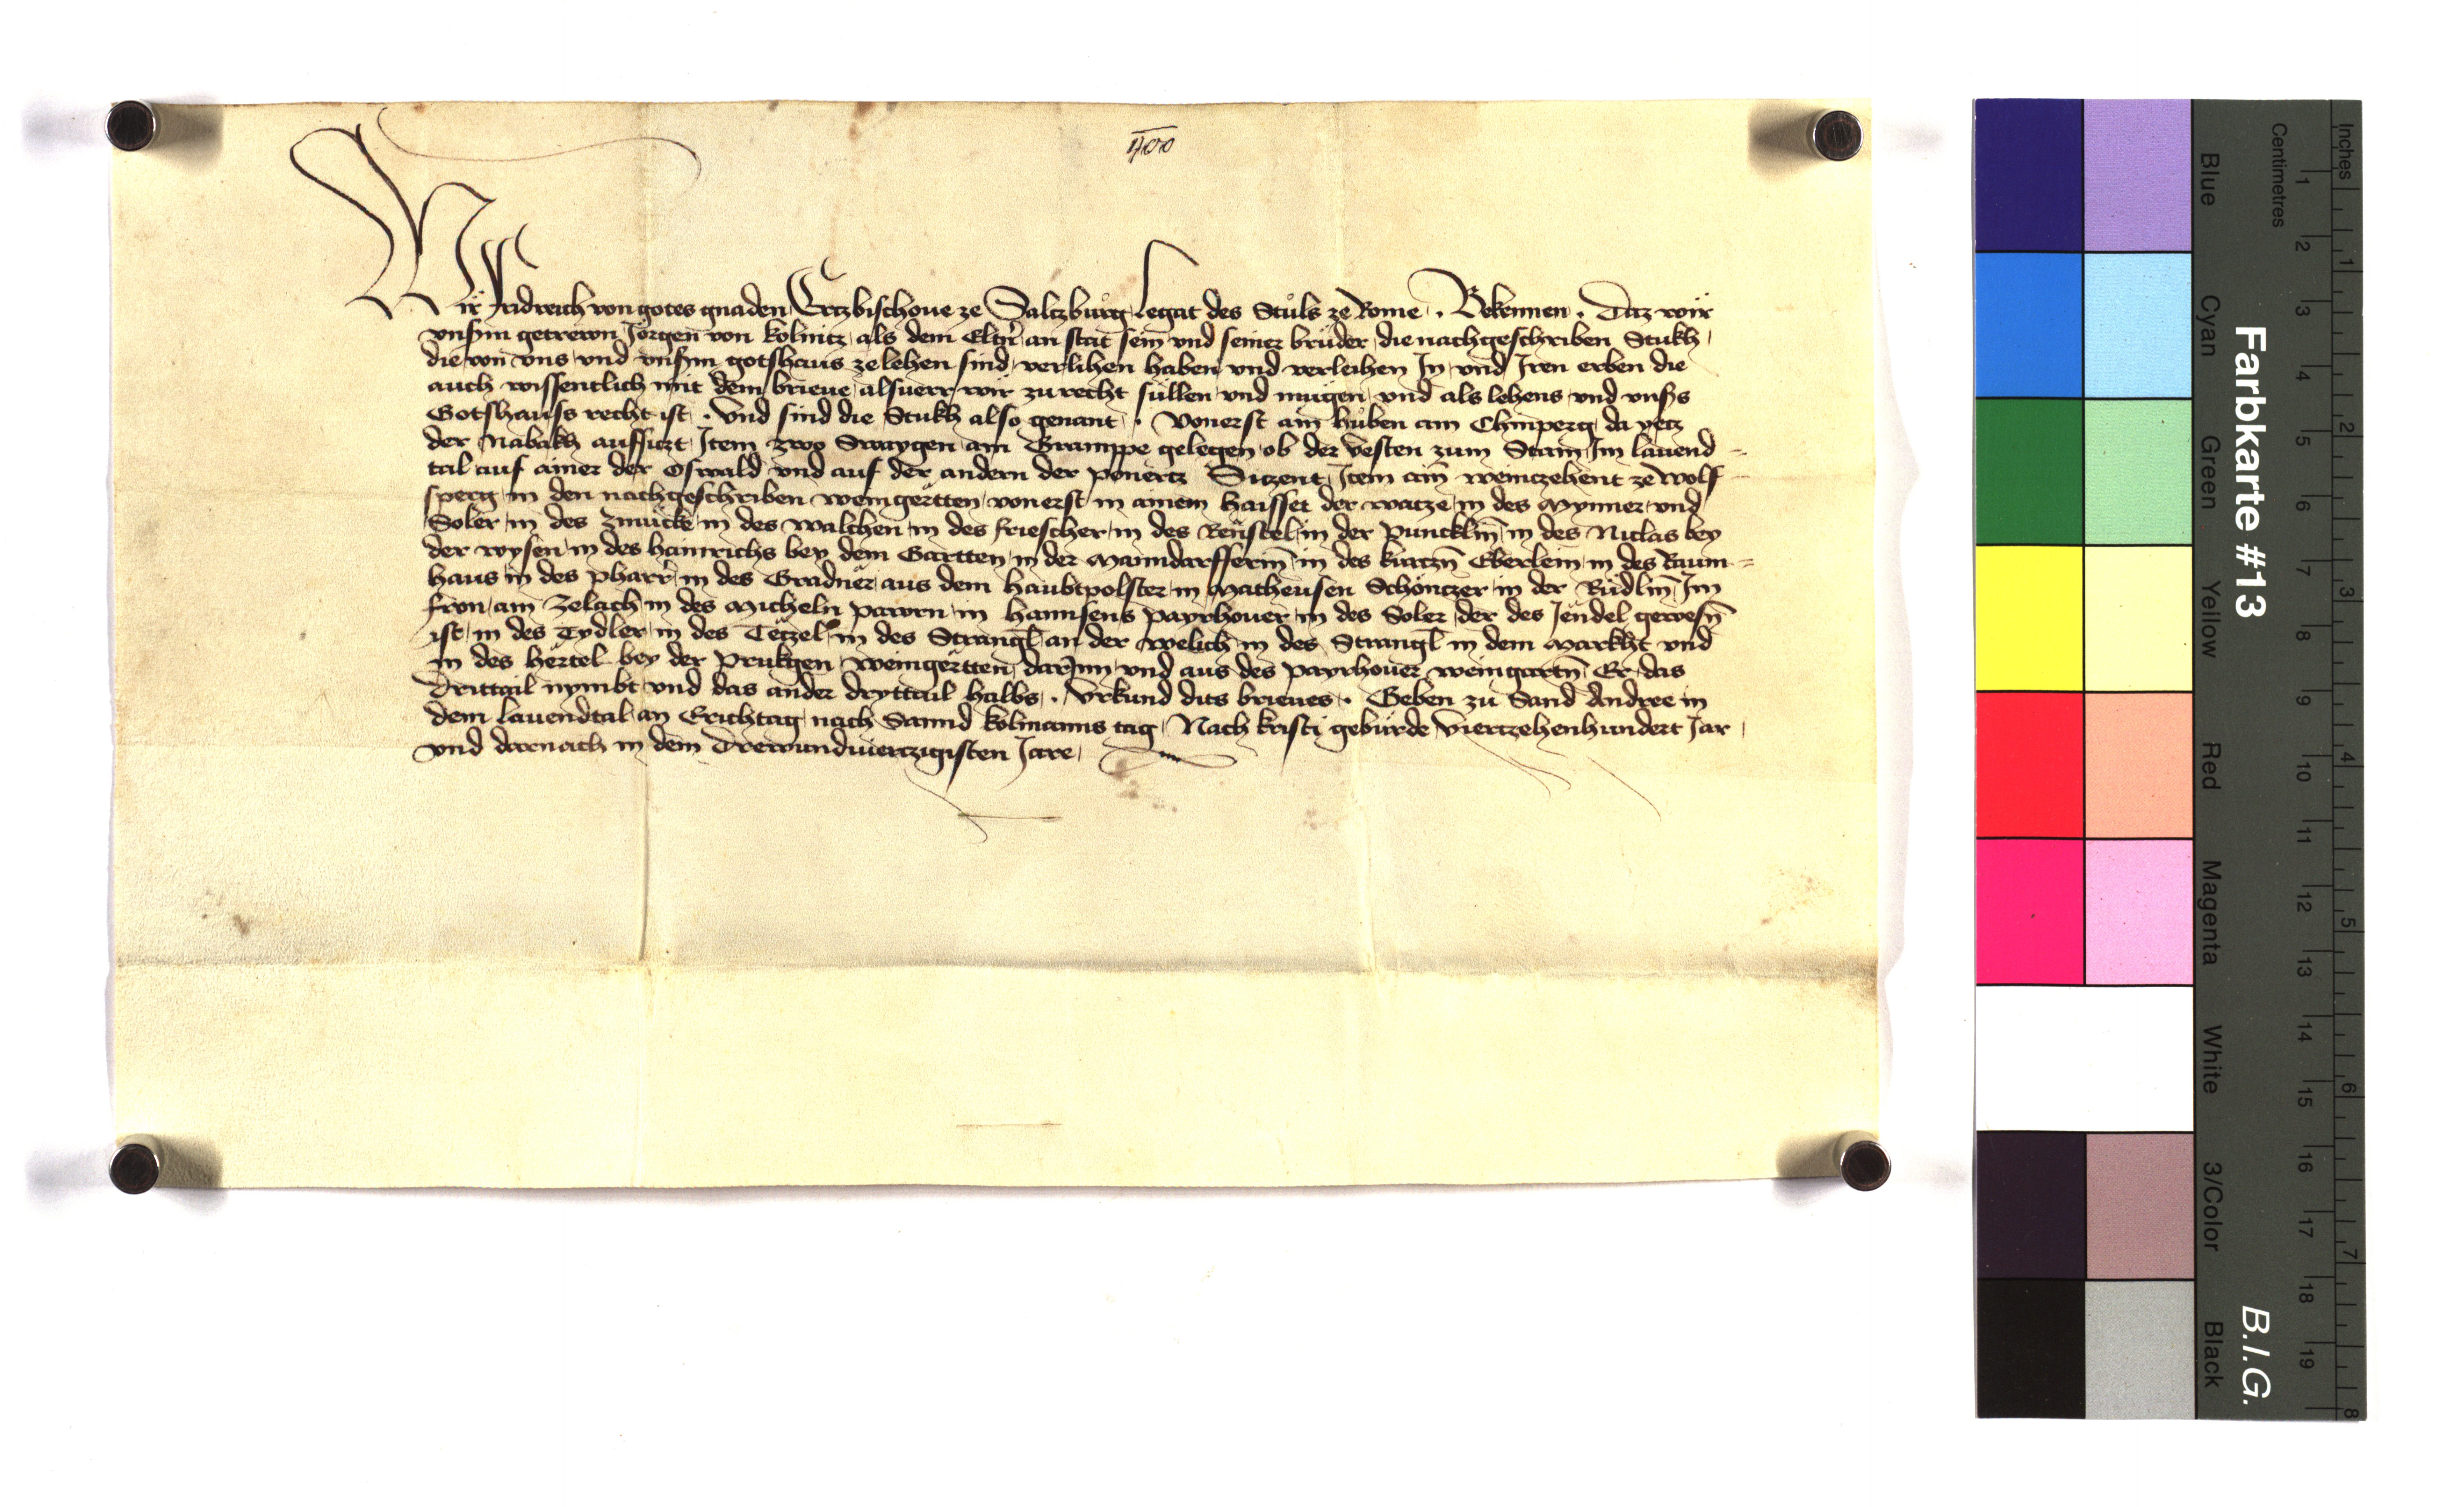 Wir Fridreich von gotes gnaden Ertzbischoue ze Saltzburg Legat des Stuls ze Rome . Bekennen . Daz wir
vnsern getrewn Jorgen von Kolnitz als dem Eltern an stat sein vnd seiner brüder die nachgeschriben Stukh
die von vns vnd vnserm gotshaus ze lehen sind verlihen haben vnd verleihen In vnd Iren erben die
auch wissentlich mit dem brieue alsuerr wir zu recht süllen vnd mugen vnd als lehens vnd vnsers
Gotshauss recht ist . Vnd sind die Stukh also genant . Vonerst ain huben am Chinperg da yetz
der Nabakh auffsiczt Item zwo Swaygen am Gramppe gelegen ob der Vesten zum Stain Im lauend
tal auf ainer der Oswald vnd auf der andern der ponertz Siczent Item ain weinczehent ze Wolf
sperg in den nachgeschriben weingertten vonerst in ainem haisset der watze in des Mynner vnd
Soler in des Zmücke in des walchen in des friescher in des Renstel in der puncklin in des Niclas bey
der wysen in des hainrichs bey dem Gartten in der Manndarfferin in des kurczn Eberlein in des Raum
haus in des pharrer in des Gradner aus dem haubtpolster in Matheusen Schontzer in der Rüdlin Im
fron am Zelach in des Micheln pawrn in hannsens payrhouer in des Soler der des Jendel gewesn
ist in des Tydler in des Tetzel in des Strangl an der welich in des Strangl in dem Markht vnd
in des hertel bey der prukgen weingertten darInn vnd aus des payrhouer weingartn Er das
drittail nymbt vnd das ander dryttail halbs . Vrkund dits brieues . Geben zu Sand Andree in
dem lauendtal an Erichtag nach Sannd kolmanns tag Nach kristi gebürde viertzehenhundert Jar
vnd darnach in dem Drewundviertzigisten Jare
Farbkarte #13
B.I.G.
Blue
Cyan
Green
Yellow
Red
Magenta
White
3/Color
Black
Centimetres
1 2 3 4 5 6 7 8 9 10 11 12 13 14 15 16 17 18 19
Inches
1 2 3 4 5 6 7 8